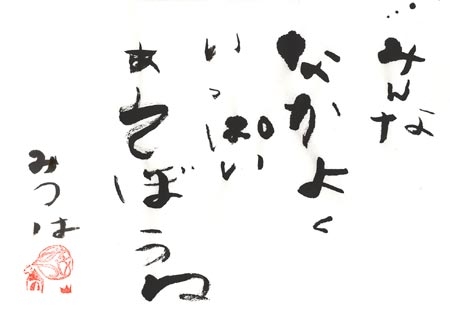 みんな
なかよく
いっぱい
あそぼうね
みつは